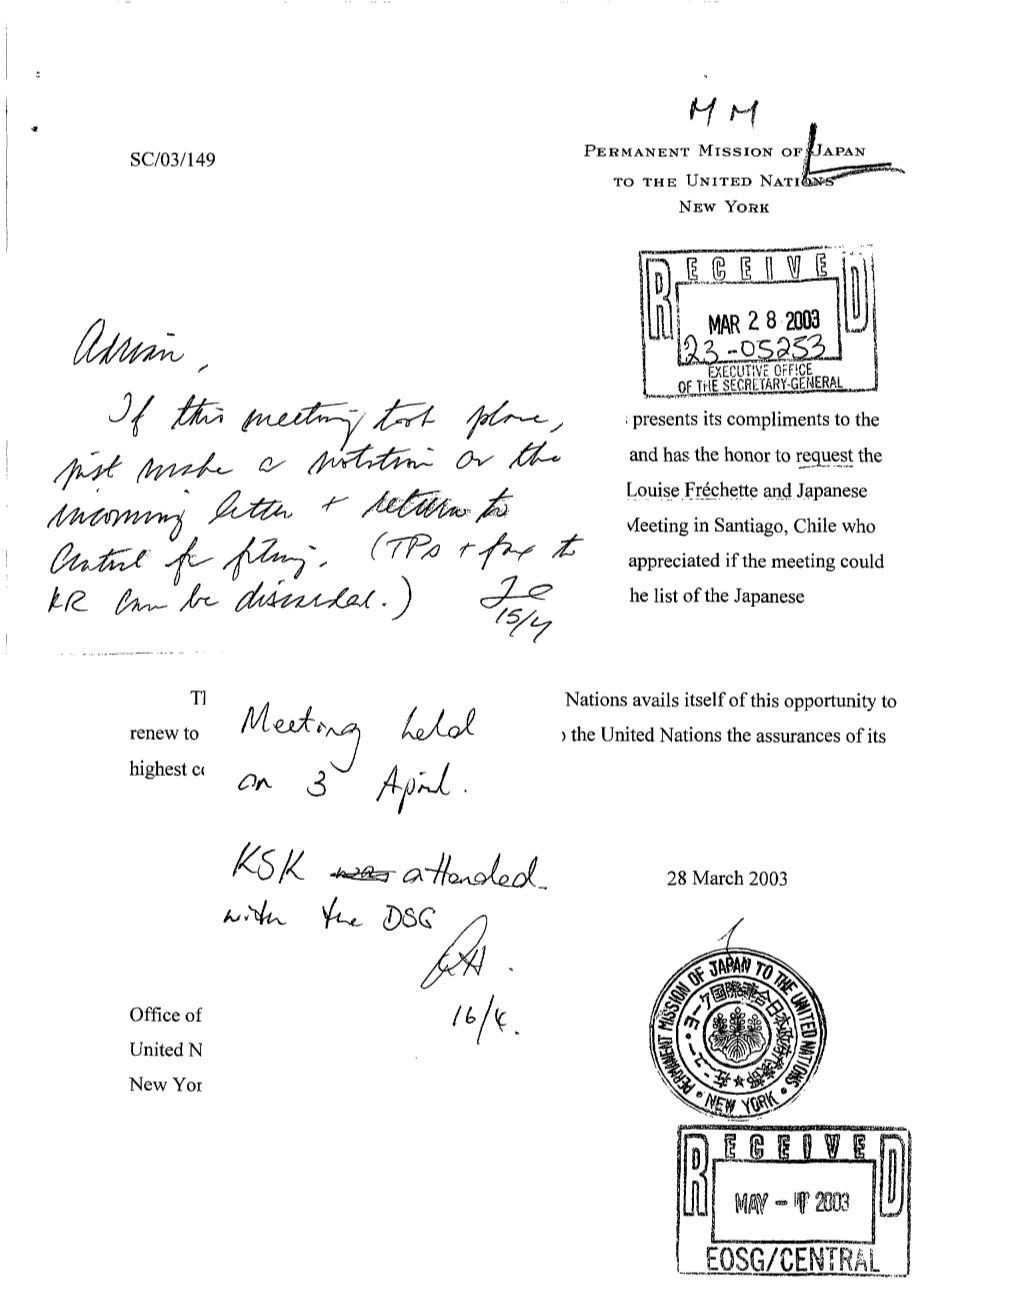 MM
SC/03/149
PERMANENT MISSION OF JAPAN
TO THE UNITED NATIONS
NEW YORK
RECEIVED
MAR 28 2003
23-05253
EXECUTIVE OFFICE
OF THE SECRETARY-GENERAL
Adrian,
If this meeting took place,
just make a notation on the
incoming letter + return to
Central for filing. (TPs + fax to
KR can be discarded.)
15/4
presents its compliments to the
and has the honor to request the
Louise Fréchette and Japanese
Meeting in Santiago, Chile who
appreciated if the meeting could
he list of the Japanese
Nations avails itself of this opportunity to
renew to
the United Nations the assurances of its
highest
Meeting held
on 3 April.
KSK was attended
with the DSG
16/4.
28 March 2003
Office of
United N
New Yor
PERMANENT MISSION OF JAPAN TO THE UNITED NATIONS
• NEW YORK •
RECEIVED
MAY - 2003
EOSG/CENTRAL